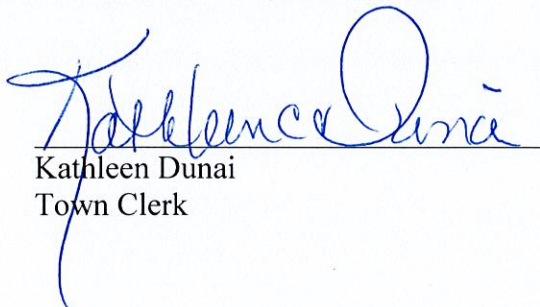 Kathleen Dunai
Kathleen Dunai
Town Clerk